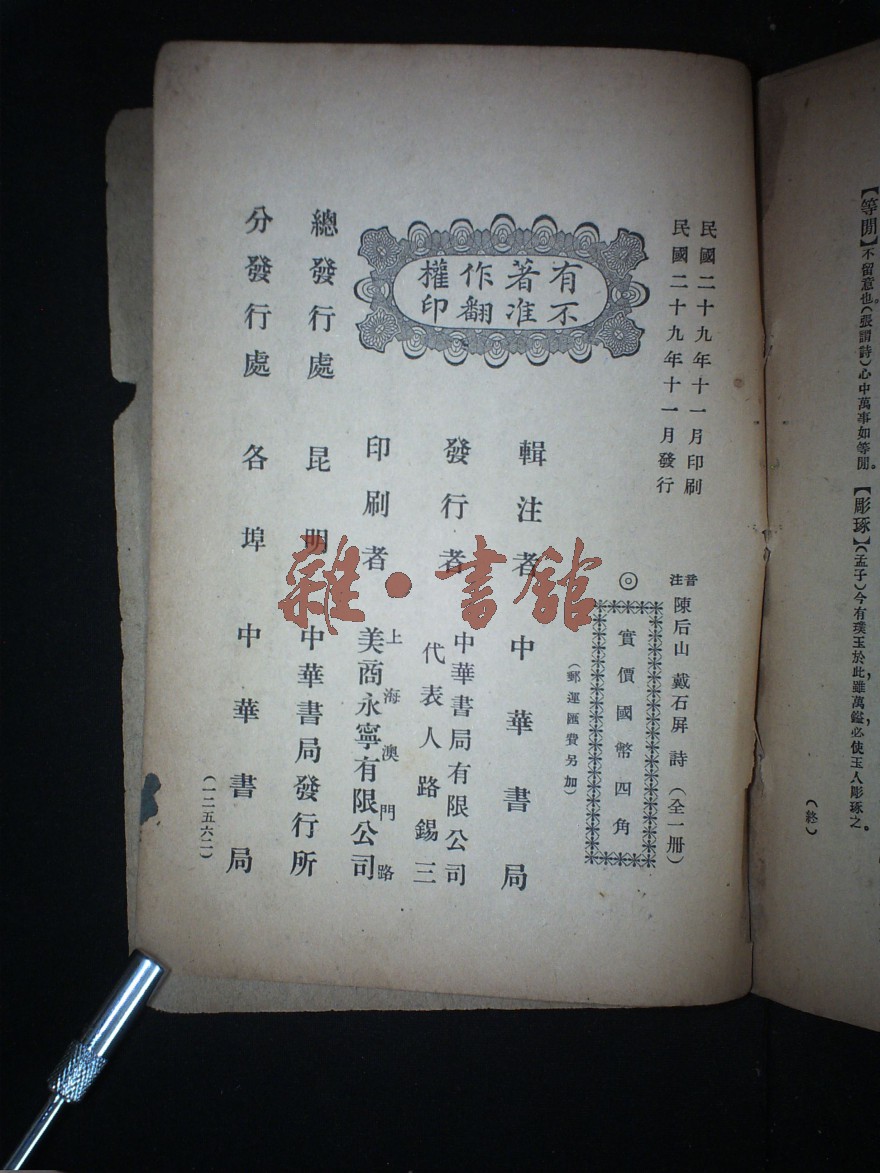 【等閒】不留意也。(張謂詩)心中萬事如等閒。
【彫琢】(孟子)今有璞玉於此,雖萬鎰,必使玉人彫琢之。
(終)
民國二十九年十一月印刷
民國二十九年十一月發行
音注 陳后山 戴石屏 詩(全一冊)
◎ 實價國幣四角
(郵運匯費另加)
有著作權
不准翻印
輯注者 中華書局
發行者 中華書局有限公司
代表人路錫三
印刷者 上海澳門路
美商永寧有限公司
總發行處 昆明 中華書局發行所
分發行處 各埠 中華書局
(一二五六二)
雜·書館